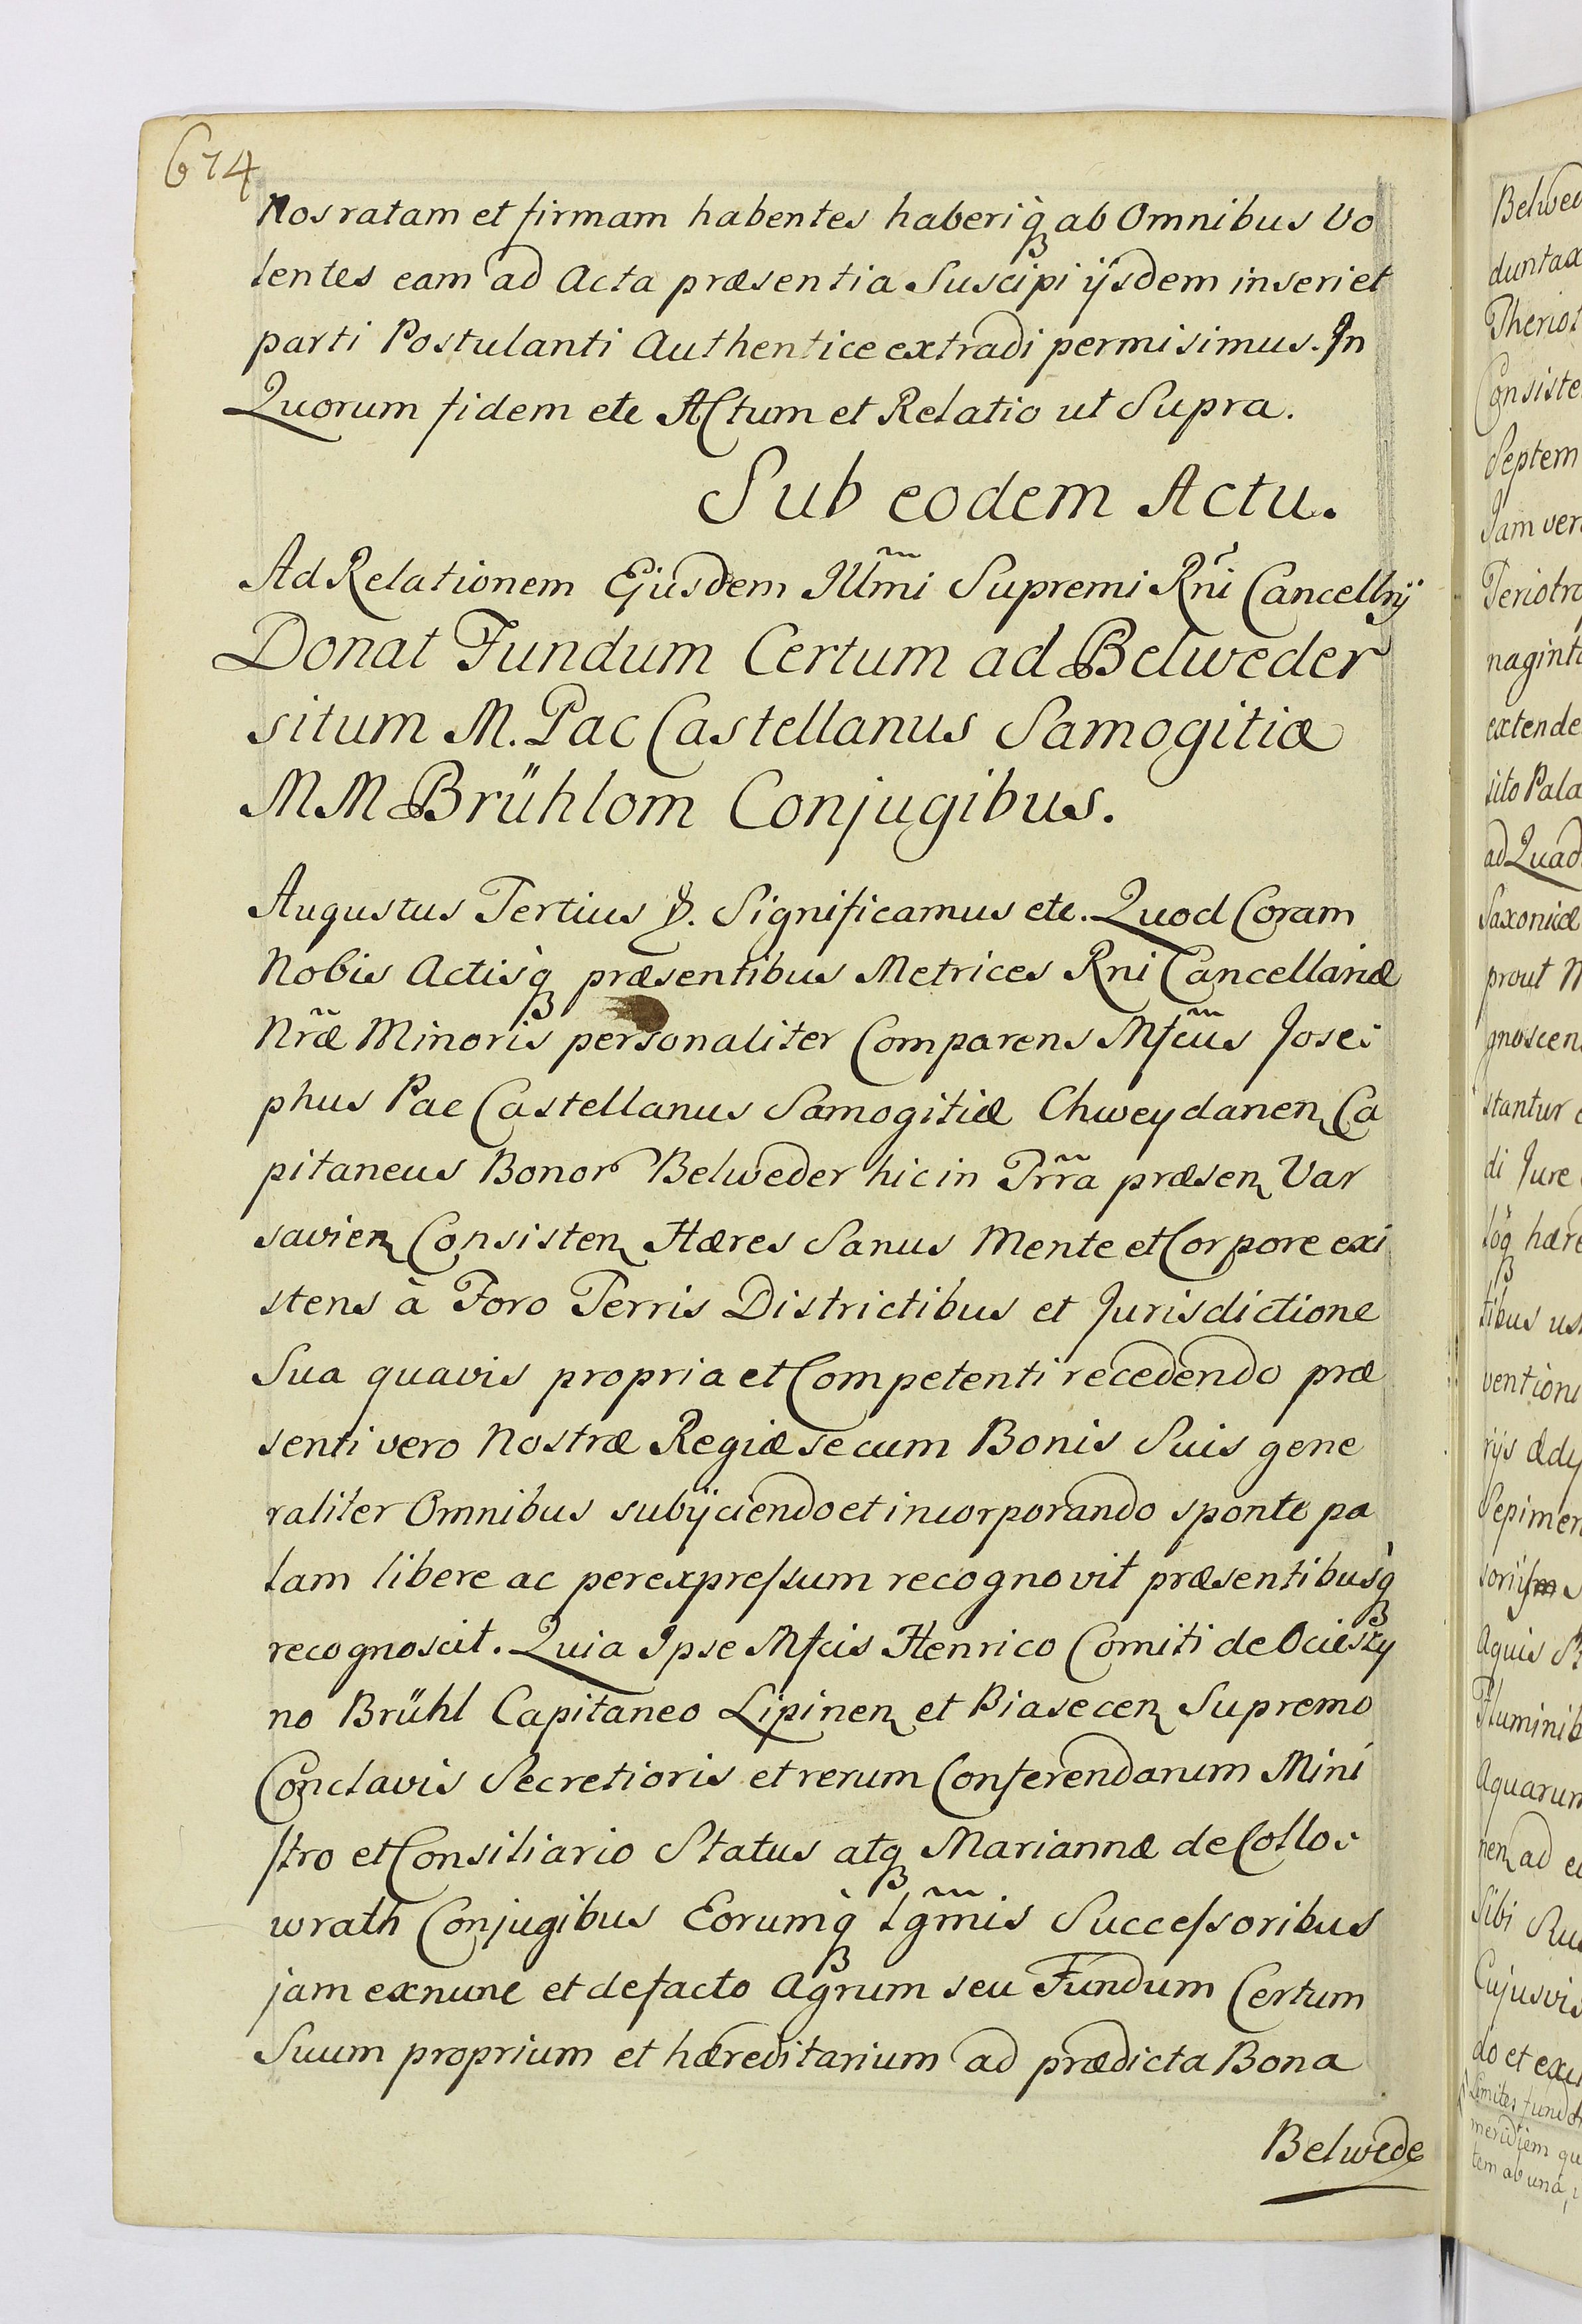 674
Nos ratam et firmam habentes haberiq̀ꝫ ab Omnibus Vo
lentes eam ad Acta præsentia Suscipi ijsdem inseri et
parti Postulanti Authentice extradi permisimus. In
Quorum fidem etc Actum et Relatio ut Supra.
Sub eodem Actu.
Ad Relationem Ejusdem Illm̃i Supremi Rñi Cancellrij
Donat Fundum Certum ad Belweder
situm M. Pac Castellanus Samogitiæ
MM Brühlom Conjugibus.
Augustus Tertius &. Significamus etc. Quod Coram
Nobis Actisq̀ꝫ præsentibus Metrices Rni Cancellariæ
Nrãe Minoris personaliter Comparens Mfcũs Jose:
phus Pac Castellanus Samogitiæ Chweydanen Ca
pitaneus Bonor Belweder hic in Trr̃a præsen Var
savien Consisten Hæres Sanus Mente et Corpore exi
stens à Foro Terris Districtibus et Jurisdictione
Sua quavis propria et Competenti recedendo præ
senti vero Nostræ Regiæ se cum Bonis Suis gene
raliter Omnibus subijciendo et incorporando sponte pa
lam libere ac per expressum recognovit præsentibusq̀ꝫ
recognoscit. Quia Ipse Mfcis Henrico Comiti de Ocieszy
no Brühl Capitaneo Lipinen et Piasecen Supremo
Conclavis Secretioris et rerum Conferendarum Mini
stro et Consiliario Status atqꝫ Mariannæ de Collo:
wrath Conjugibus Eorumq̀ꝫ Lgm̃is Successoribus
jam exnunc et defacto Agrum seu Fundum Certum
Suum proprium et hæreditarium ad prædicta Bona
Belwede